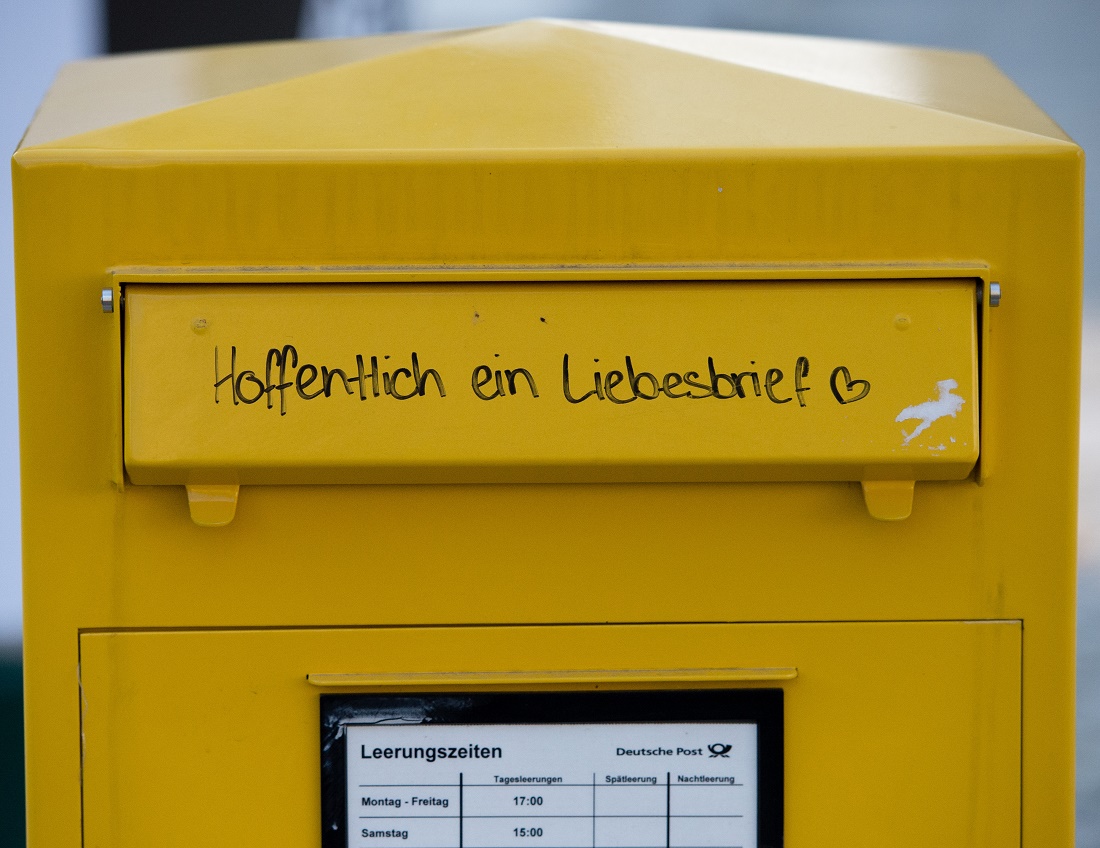 Hoffentlich ein Liebesbrief ♡
Leerungszeiten Deutsche Post
Tagesleerungen Spätleerung Nachtleerung
Montag - Freitag 17:00
Samstag 15:00